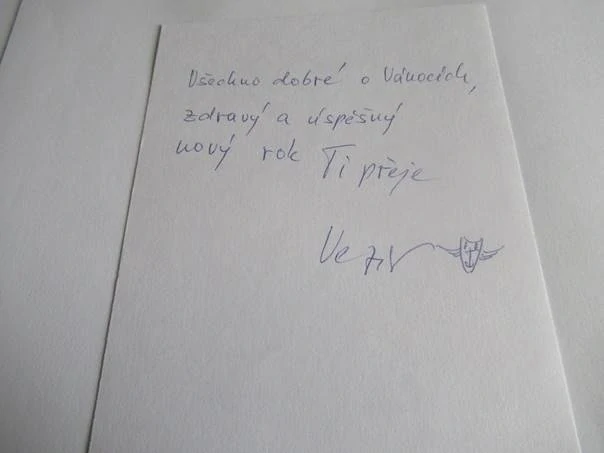 Všechno dobré o Vánocích,
zdravý a úspěšný
nový rok Ti přeje